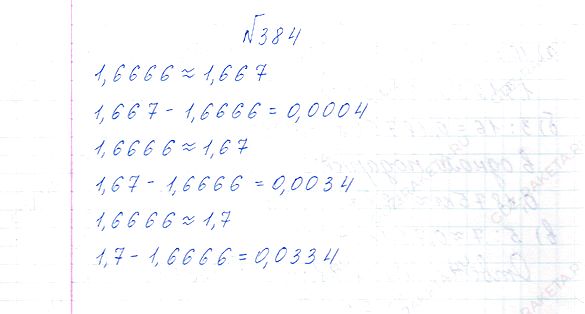 №384
1,6666 ≈ 1,667
1,667 - 1,6666 = 0,0004
1,6666 ≈ 1,67
1,67 - 1,6666 = 0,0034
1,6666 ≈ 1,7
1,7 - 1,6666 = 0,0334